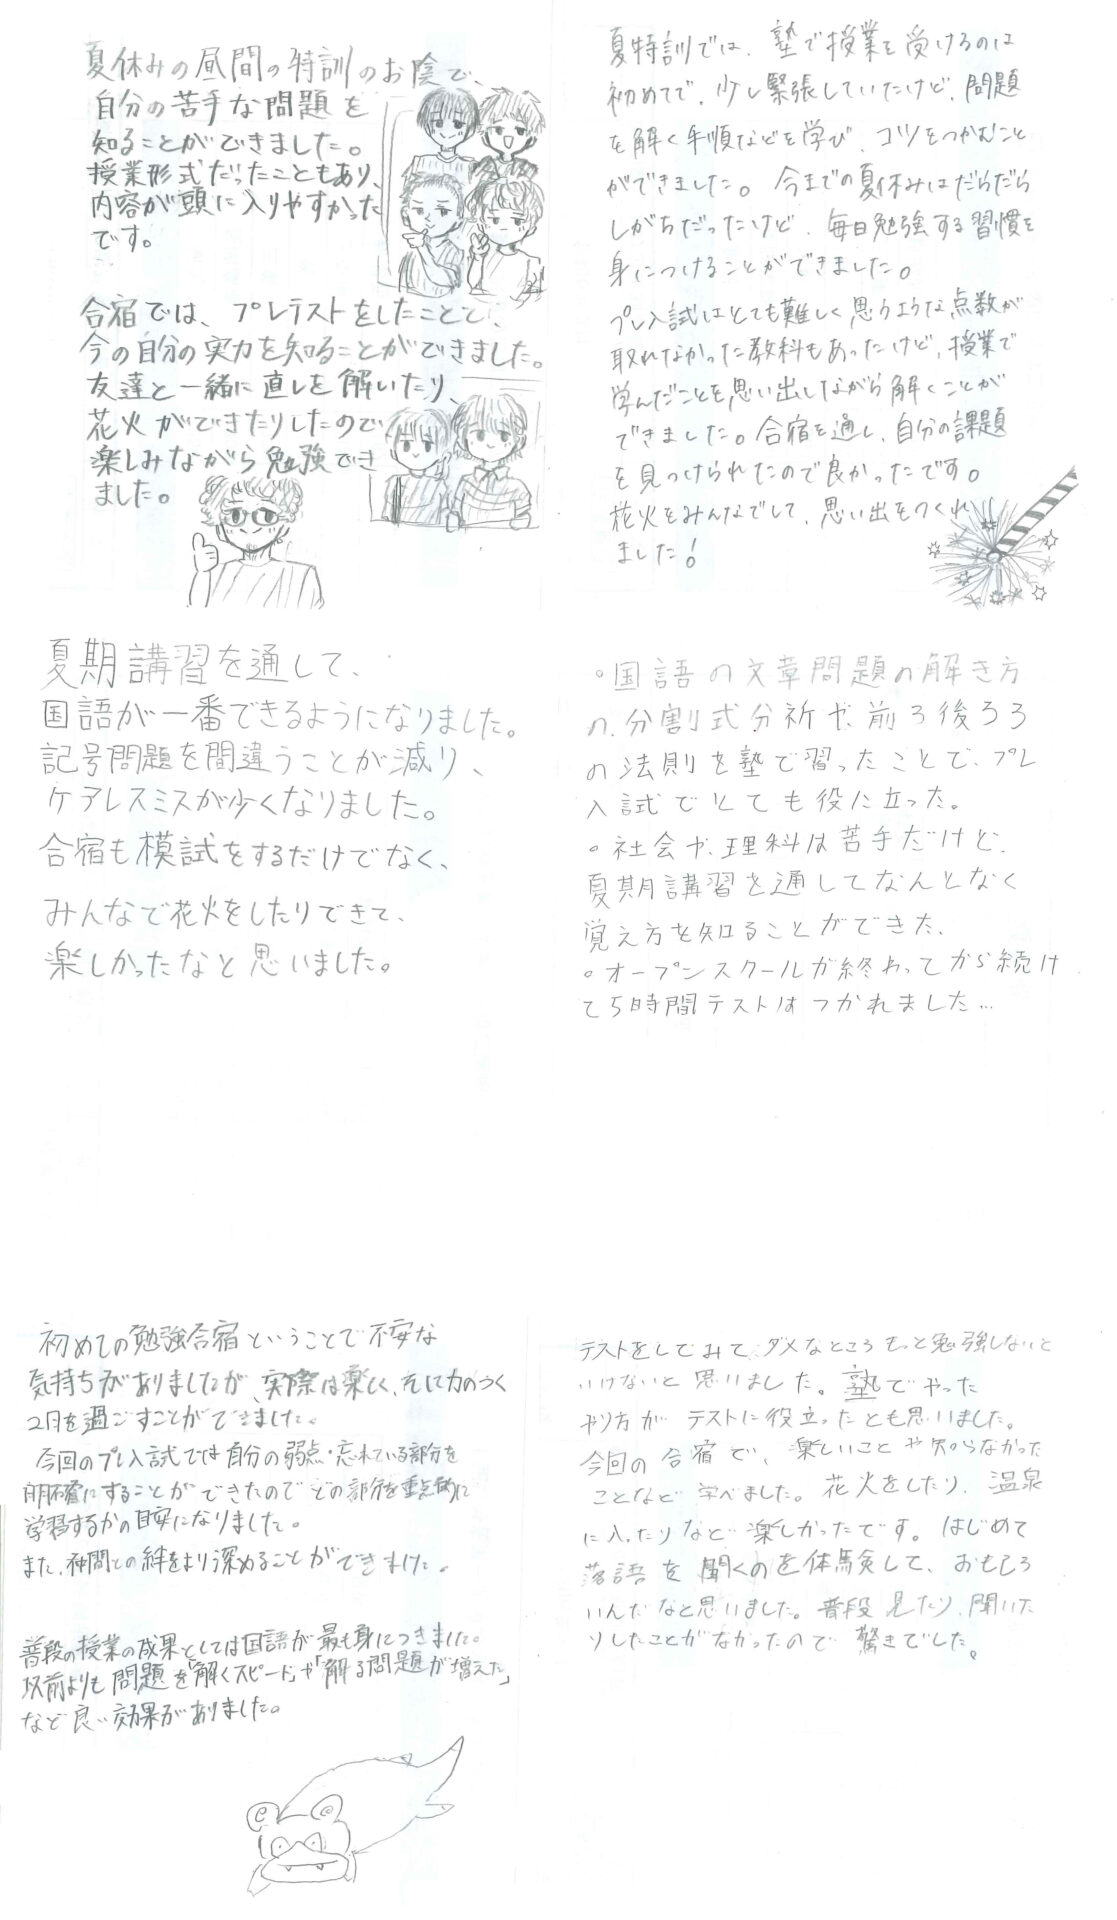 夏休みの昼間の特訓のお陰で、
自分の苦手な問題を
知ることができました。
授業形式だったこともあり、
内容が頭に入りやすかった
です。
合宿では、プレテストをしたことで、
今の自分の実力を知ることができました。
友達と一緒に直しを解いたり、
花火ができたりしたので
楽しみながら勉強でき
ました。
夏特訓では、塾で授業を受けるのは
初めてで、少し緊張していたけど、問題
を解く手順などを学び、コツをつかむこと
ができました。今までの夏休みはだらだら
しがちだったけど、毎日勉強する習慣を
身につけることができました。
プレ入試はとても難しく思うような点数が
取れなかった教科もあったけど、授業で
学んだことを思い出しながら解くことが
できました。合宿を通し、自分の課題
を見つけられたので良かったです。
花火をみんなでして、思い出をつくれ
ました!
夏期講習を通して、
国語が一番できるようになりました。
記号問題を間違うことが減り、
ケアレスミスが少くなりました。
合宿も模試をするだけでなく、
みんなで花火をしたりできて、
楽しかったなと思いました。
・国語の文章問題の解き方
の、分割式分析や、前ろ後ろろ
の法則を塾で習ったことで、プレ
入試でとても役に立った。
・社会や、理科は苦手だけど、
夏期講習を通してなんとなく
覚え方を知ることができた、
・オープンスクールが終わってから続け
て5時間テストはつかれました…
初めての勉強合宿ということで不安な
気持ちがありましたが、実際は楽しく、そして力のつく
2日を過ごすことができました。
今回のプレ入試では自分の弱点・忘れている部分を
明確にすることができたのでどの部分を重点的に
学習するかの目安になりました。
また、仲間との絆をより深めることができました。
普段の授業の成果としては国語が最も身につきました。
以前よりも問題を「解くスピード」や「解る問題が増えた」
など良い効果がありました。
テストをしてみて、ダメなところもっと勉強しないと
いけないと思いました。塾でやった
やり方がテストに役立ったとも思いました。
今回の合宿で、楽しいことや知らなかった
ことなど学べました。花火をしたり、温泉
に入ったりなど楽しかったです。はじめて
落語を聞くのを体験して、おもしろ
いんだなと思いました。普段見たり、聞いた
りしたことがなかったので驚きでした。